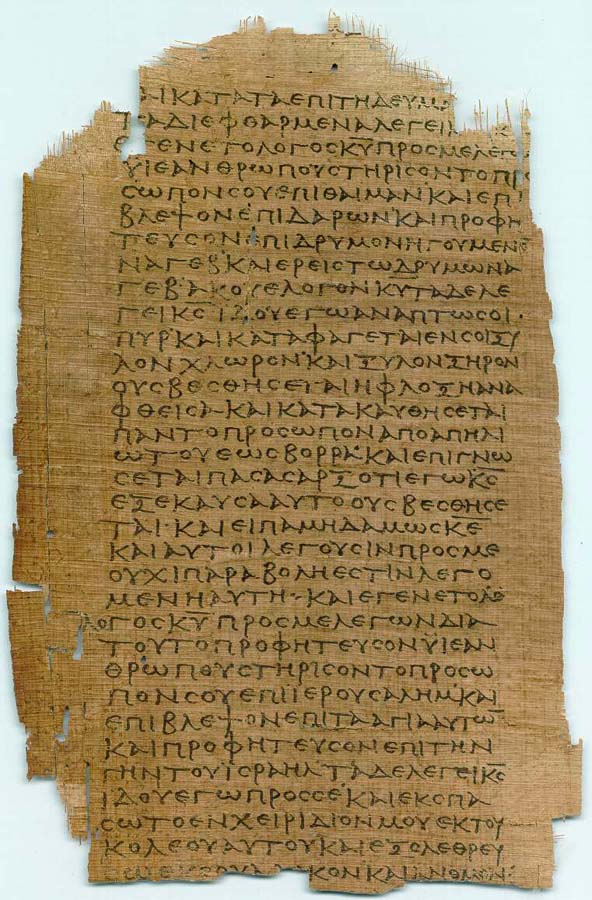 ΑΙΚΑΤΑΤΑΕΠΙΤΗΔΕΥΜΑ
ΤΑΔΙΕΦΘΑΡΜΕΝΑΛΕΓΕΙ
ΕΓΕΝΕΤΟΛΟΓΟСΚ̅Υ̅ΠΡΟСΜΕΛΕΓΩ
ΥΙΕΑΝΘΡΩΠΟΥСΤΗΡΙСΟΝΤΟΠΡΟ
СΩΠΟΝСΟΥΕΠΙΘΑΙΜΑΝΚΑΙΕΠΙ
ΒΛΕΨΟΝΕΠΙΔΑΡΩΜΚΑΙΠΡΟΦΗ
ΤΕΥСΟΝΕΠΙΔΡΥΜΟΝΗΓΟΥΜΕΝΟ
ΝΑΓΕΒΚΑΙΕΡΕΙСΤΩΔΡΥΜΩΝΑ
ΓΕΒΑΚΟΥΕΛΟΓΟΝΚ̅Υ̅ΤΑΔΕΛΕ
ΓΕΙΚ̅С̅ΙΔΟΥΕΓΩΑΝΑΠΤΩСΟΙ·
ΠΥΡΚΑΙΚΑΤΑΦΑΓΕΤΑΙΕΝСΟΙΞΥ
ΛΟΝΧΛΩΡΟΝΚΑΙΞΥΛΟΝΞΗΡΟΝ
ΟΥСΒΕСΘΗСΕΤΑΙΗΦΛΟΞΗΑΝΑ
ΦΘΕΙСΑ·ΚΑΙΚΑΤΑΚΑΥΘΗСΕΤΑΙ
ΠΑΝΤΟΠΡΟСΩΠΟΝΑΠΟΑΠΗΛΙ
ΩΤΟΥΕΩСΒΟΡΡΑΚΑΙΕΠΙΓΝΩ
СΕΤΑΙΠΑСΑСΑΡΞΟΤΙΕΓΩΚ̅С̅
ΕΞΕΚΑΥСΑΑΥΤΟΟΥСΒΕСΘΗСΕ
ΤΑΙ·ΚΑΙΕΙΠΑΜΗΔΑΜΩСΚ̅Ε̅
ΚΑΙΑΥΤΟΙΛΕΓΟΥСΙΝΠΡΟСΜΕ
ΟΥΧΙΠΑΡΑΒΟΛΗΕСΤΙΝΛΕΓΟ
ΜΕΝΗΑΥΤΗ·ΚΑΙΕΓΕΝΕΤΟΛΟ
ΛΟΓΟСΚ̅Υ̅ΠΡΟСΜΕΛΕΓΩΝΔΙΑ
ΤΟΥΤΟΠΡΟΦΗΤΕΥСΟΝΥΙΕΑΝ
ΘΡΩΠΟΥСΤΗΡΙСΟΝΤΟΠΡΟСΩ
ΠΟΝСΟΥΕΠΙΙΕΡΟΥСΑΛΗΜΚΑΙ
ΕΠΙΒΛΕΨΟΝΕΠΙΤΑΑΓΙΑΑΥΤΩ̅
ΚΑΙΠΡΟΦΗΤΕΥСΟΝΕΠΙΤΗΝ
ΓΗΝΤΟΥΙСΡΑΗΛΤΑΔΕΛΕΓΕΙΚ̅С̅
ΙΔΟΥΕΓΩΠΡΟССΕΚΑΙΕΚСΠΑ
СΩΤΟΕΝΧΕΙΡΙΔΙΟΝΜΟΥΕΚΤΟΥ
ΚΟΛΕΟΥΑΥΤΟΥΚΑΙΕΞΟΛΕΘΡΕΥ